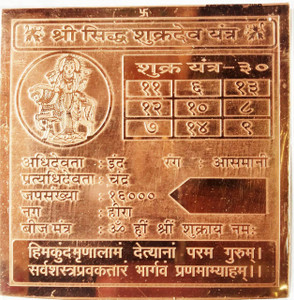 श्री सिद्ध शुक्रदेव यंत्र
शुक्र यंत्र - ३०
११ ६ १३
१२ १० ८
७ १४ ९
अधिदेवता : इंद्र रंग : आसमानी
प्रत्यधिदेवता : चंद्र
जपसंख्या : १६०००
नग : हीरा
बीज मंत्र : ॐ हीं श्रीं शुक्राय नमः
हिमकुंदमृणालामं देत्यानां परम गुरुम् ।
सर्वशस्त्रप्रवक्तार भार्गवं प्रणमाम्यहम् ।।